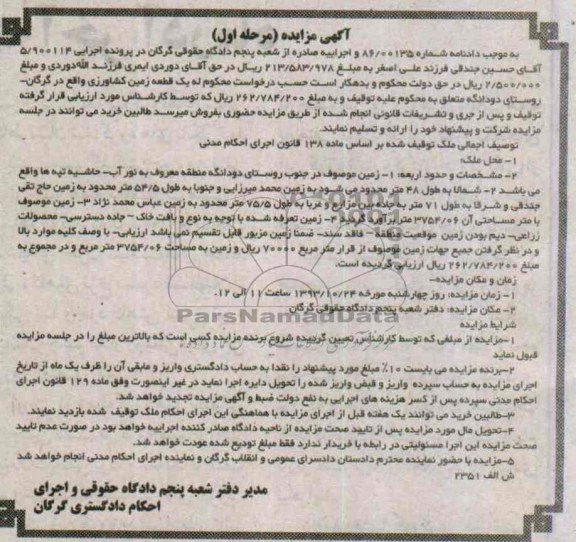 آگهی مزایده (مرحله اول)
به موجب دادنامه شماره ۸۶/۰۰۱۳۵ و اجراییه صادره از شعبه پنجم دادگاه حقوقی گرگان در پرونده اجرایی ۵/۹۰۰۱۱۴
آقای حسین جندقی فرزند علی اصغر به مبلغ ۲۱۳/۵۸۳/۹۷۸ ریال در حق آقای دوردی ایمری فرزند الله‌دوردی و مبلغ
۲/۵۰۰/۰۰۰ ریال در حق دولت محکوم و بدهکار است حسب درخواست محکوم له یک قطعه زمین کشاورزی واقع در گرگان-
روستای دودانگه متعلق به محکوم علیه توقیف و به مبلغ ۲۶۲/۷۸۴/۲۰۰ ریال که توسط کارشناس مورد ارزیابی قرار گرفته
توقیف و پس از جری و تشریفات قانونی انجام شده از طریق مزایده حضوری بفروش میرسد طالبین خرید می توانند در جلسه
مزایده شرکت و پیشنهاد خود را ارائه و تسلیم نمایند.
توصیف اجمالی ملک توقیف شده بر اساس ماده ۱۳۸ قانون اجرای احکام مدنی
۱- محل ملک:
۲- مشخصات و حدود اربعه: ۱- زمین موصوف در جنوب روستای دودانگه منطقه معروف به نور آب- حاشیه تپه ها واقع
می باشد ۲- شمالا به طول ۴۸ متر محدود می شود به زمین محمد میرزایی و جنوبا به طول ۵۴/۵ متر محدود به زمین حاج تقی
جندقی و شرقا به طول ۷۱ متر به جاده بین مزارع و غربا به طول ۷۵/۵ متر محدود به زمین عباس محمد نژاد ۳- زمین موصوف
با متر مساحتی آن ۳۷۵۴/۰۶ متر برآورد گردید ۴- زمین تعرفه شده با توجه به نوع و بافت خاک – جاده دسترسی- محصولات
زراعی- دیم بودن زمین موقعیت منطقه – فاقد سند- ضمنا زمین مزبور قابل تقسیم نمی باشد ارزیابی- با وصف کلیه موارد بالا
و در نظر گرفتن جمیع جهات زمین موصوف از قرار متر مربع ۷۰۰۰۰ ریال و زمین به مساحت ۳۷۵۴/۰۶ متر مربع و در مجموع به
مبلغ ۲۶۲/۷۸۴/۲۰۰ ریال ارزیابی گردیده است.
زمان و مکان مزایده-
۱- زمان مزایده: روز چهارشنبه مورخه ۱۳۹۳/۱۰/۲۴ ساعت ۱۱ الی ۱۲.
۲- مکان مزایده: دفتر شعبه پنجم دادگاه حقوقی گرگان
ParsNamadData
شرایط مزایده
۱-مزایده از مبلغی که توسط کارشناس تعیین گردیده شروع برنده مزایده کسی است که بالاترین مبلغ را در جلسه مزایده
قبول نماید
۲-برنده مزایده می بایست ۱۰٪ مبلغ مورد پیشنهاد را نقدا به حساب دادگستری واریز و مابقی آن را ظرف یک ماه از تاریخ
اجرای مزایده به حساب سپرده واریز و قبض واریز شده را تحویل دایره اجرا نماید در غیر اینصورت وفق ماده ۱۲۹ قانون اجرای
احکام مدنی سپرده پس از کسر هزینه های اجرایی به نفع دولت ضبط و آگهی مزایده تجدید خواهد شد.
۳-طالبین خرید می توانند یک هفته قبل از اجرای مزایده با هماهنگی این اجرای احکام ملک توقیف شده بازدید نمایند.
۴-تحویل مال مورد مزایده پس از تایید صحت مزایده از ناحیه دادگاه صادر کننده اجراییه خواهد بود در صورت عدم تایید
صحت مزایده این اجرا مسئولیتی در رابطه با خریدار ندارد فقط مبلغ تودیع شده عودت خواهد شد.
۵-مزایده با حضور نماینده محترم دادستان دادسرای عمومی و انقلاب گرگان و نماینده اجرای احکام مدنی انجام خواهد شد
ش الف ۲۳۵۱
مدیر دفتر شعبه پنجم دادگاه حقوقی و اجرای
احکام دادگستری گرگان